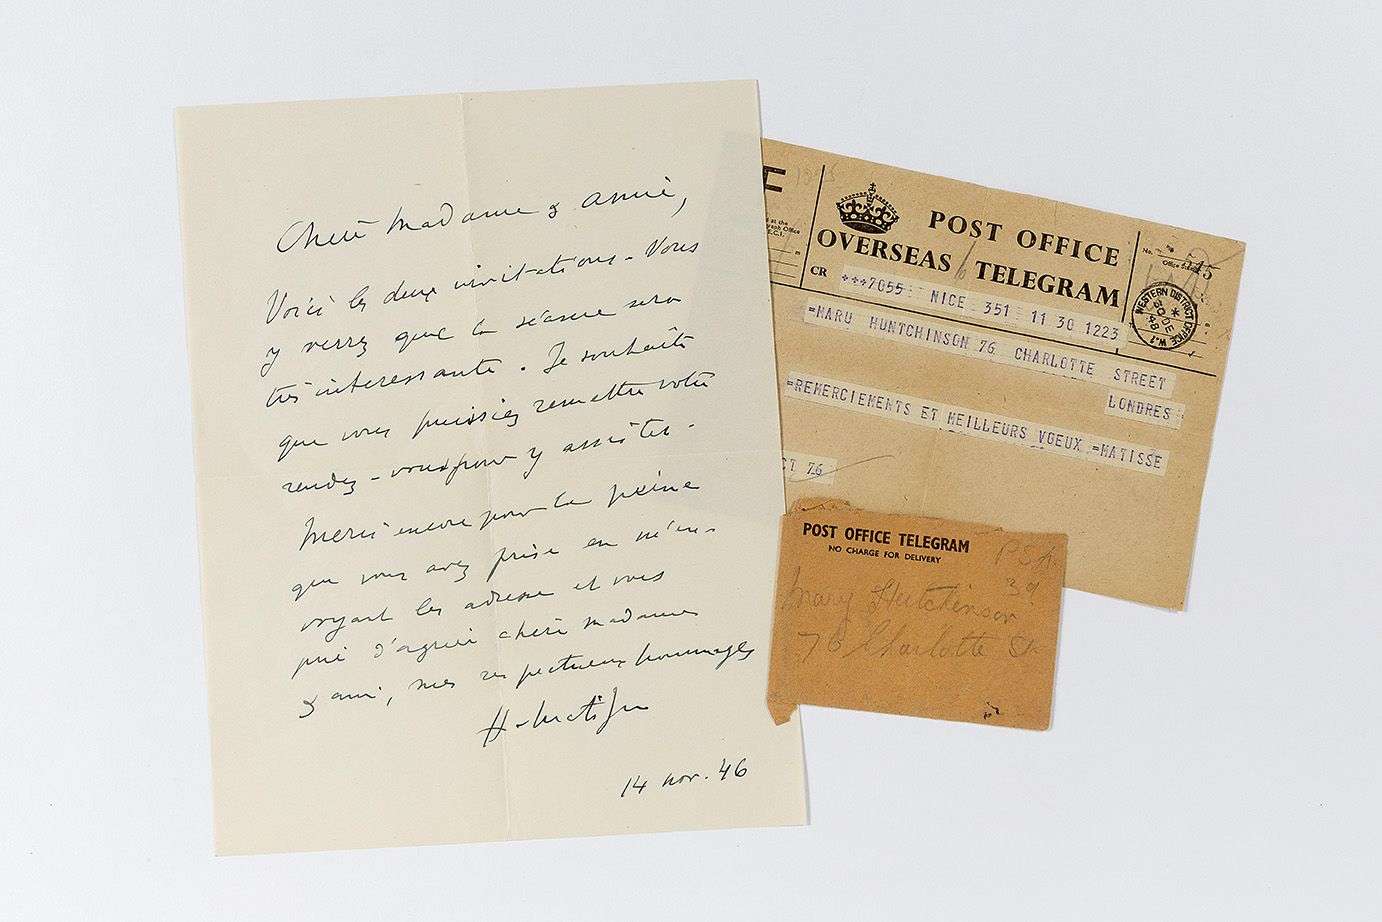 Chère Madame & amie,
Voici les deux invitations - Vous
y verrez que la séance sera
très intéressante. Je souhaite
que vous puissiez remettre votre
rendez-vous pour y assister.
Merci encore pour la peine
que vous avez prise en m'en-
voyant les adresse et vous
prie d'agréer chère madame
& amie, mes respectueux hommages
H-Matisse
14 nov. 46
POST OFFICE
OVERSEAS TELEGRAM
No.
Office Stamp
545
CR
***7055 NICE 351 11 30 1223
WESTERN DISTRICT OFFICE W.1
30 DE
48
=MARU HUNTCHINSON 76 CHARLOTTE STREET
LONDRES
=REMERCIEMENTS ET MEILLEURS VOEUX =MATISSE
CT 76
POST OFFICE TELEGRAM
NO CHARGE FOR DELIVERY
Mary Hutchinson
76 Charlotte St.